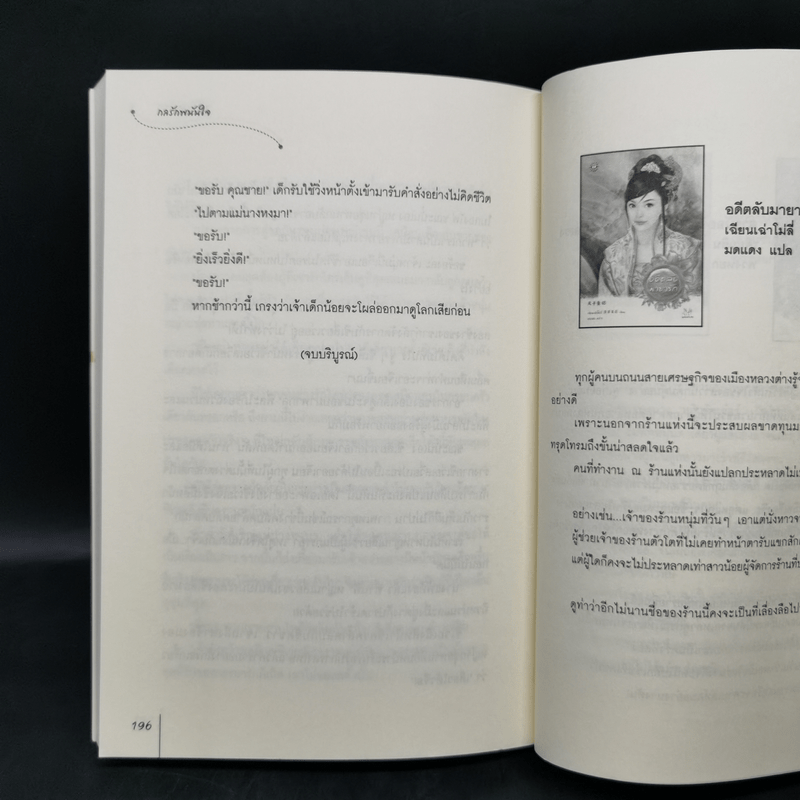 กลรักพนันใจ
"ขอรับ คุณชาย!" เด็กรับใช้วิ่งหน้าตั้งเข้ามารับคำสั่งอย่างไม่คิดชีวิต
"ไปตามแม่นางหงมา!"
"ขอรับ!"
"ยิ่งเร็วยิ่งดี!"
"ขอรับ!"
หากช้ากว่านี้ เกรงว่าเจ้าเด็กน้อยจะโผล่ออกมาดูโลกเสียก่อน
(จบบริบูรณ์)
196
อดีตลับมายา
เฉียนเฉ่าโม่ลี่
มดแดง แปล
ทุกผู้คนบนถนนสายเศรษฐกิจของเมืองหลวงต่างรู้จ
อย่างดี
เพราะนอกจากร้านแห่งนี้จะประสบผลขาดทุนม
ทรุดโทรมถึงขั้นน่าสลดใจแล้ว
คนที่ทำงาน ณ ร้านแห่งนั้นยังแปลกประหลาดไม่เ
อย่างเช่น...เจ้าของร้านหนุ่มที่วันๆ เอาแต่นั่งหาวจ
ผู้ช่วยเจ้าของร้านตัวโตที่ไม่เคยทำหน้าตารับแขกสัก
แต่ผู้ใดก็คงจะไม่ประหลาดเท่าสาวน้อยผู้จัดการร้านที่
ดูท่าว่าอีกไม่นานชื่อของร้านนี้คงจะเป็นที่เลื่องลือไป